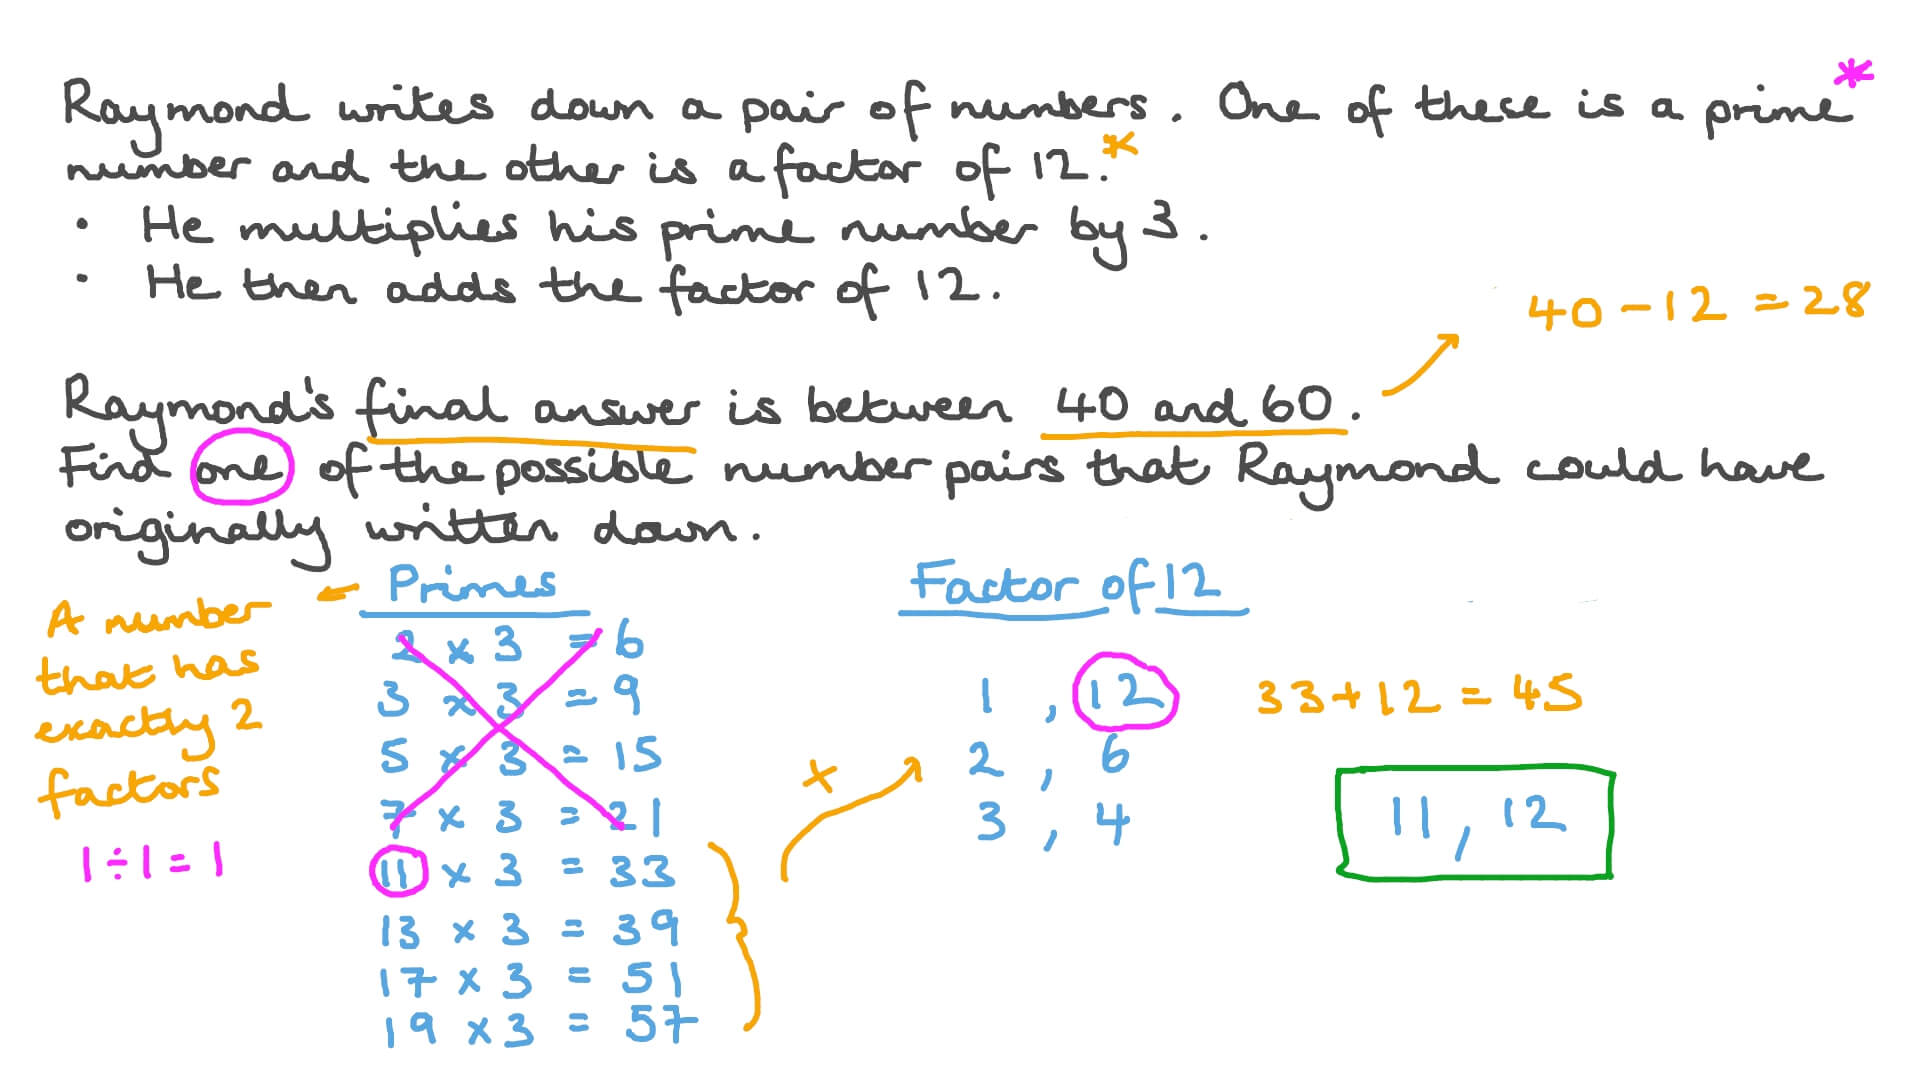 Raymond writes down a pair of numbers. One of these is a prime*
number and the other is a factor of 12.*
• He multiplies his prime number by 3.
• He then adds the factor of 12.
40 - 12 = 28
Raymond's final answer is between 40 and 60.
Find one of the possible number pairs that Raymond could have
originally written down.
A number
that has
exactly 2
factors
1 ÷ 1 = 1
Primes
2 × 3 = 6
3 × 3 = 9
5 × 3 = 15
7 × 3 = 21
11 × 3 = 33
13 × 3 = 39
17 × 3 = 51
19 × 3 = 57
+
Factor of 12
1 , 12
2 , 6
3 , 4
33 + 12 = 45
11 , 12